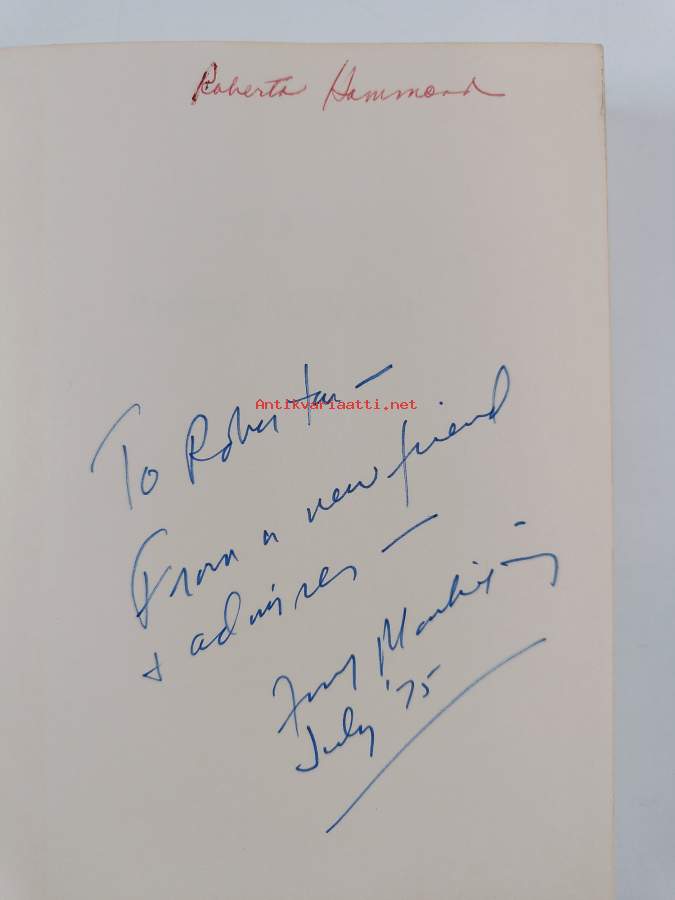 Roberta Hammond
Antikvariaatti.net
To Roberta —
From a new friend
& admirer —
July '75